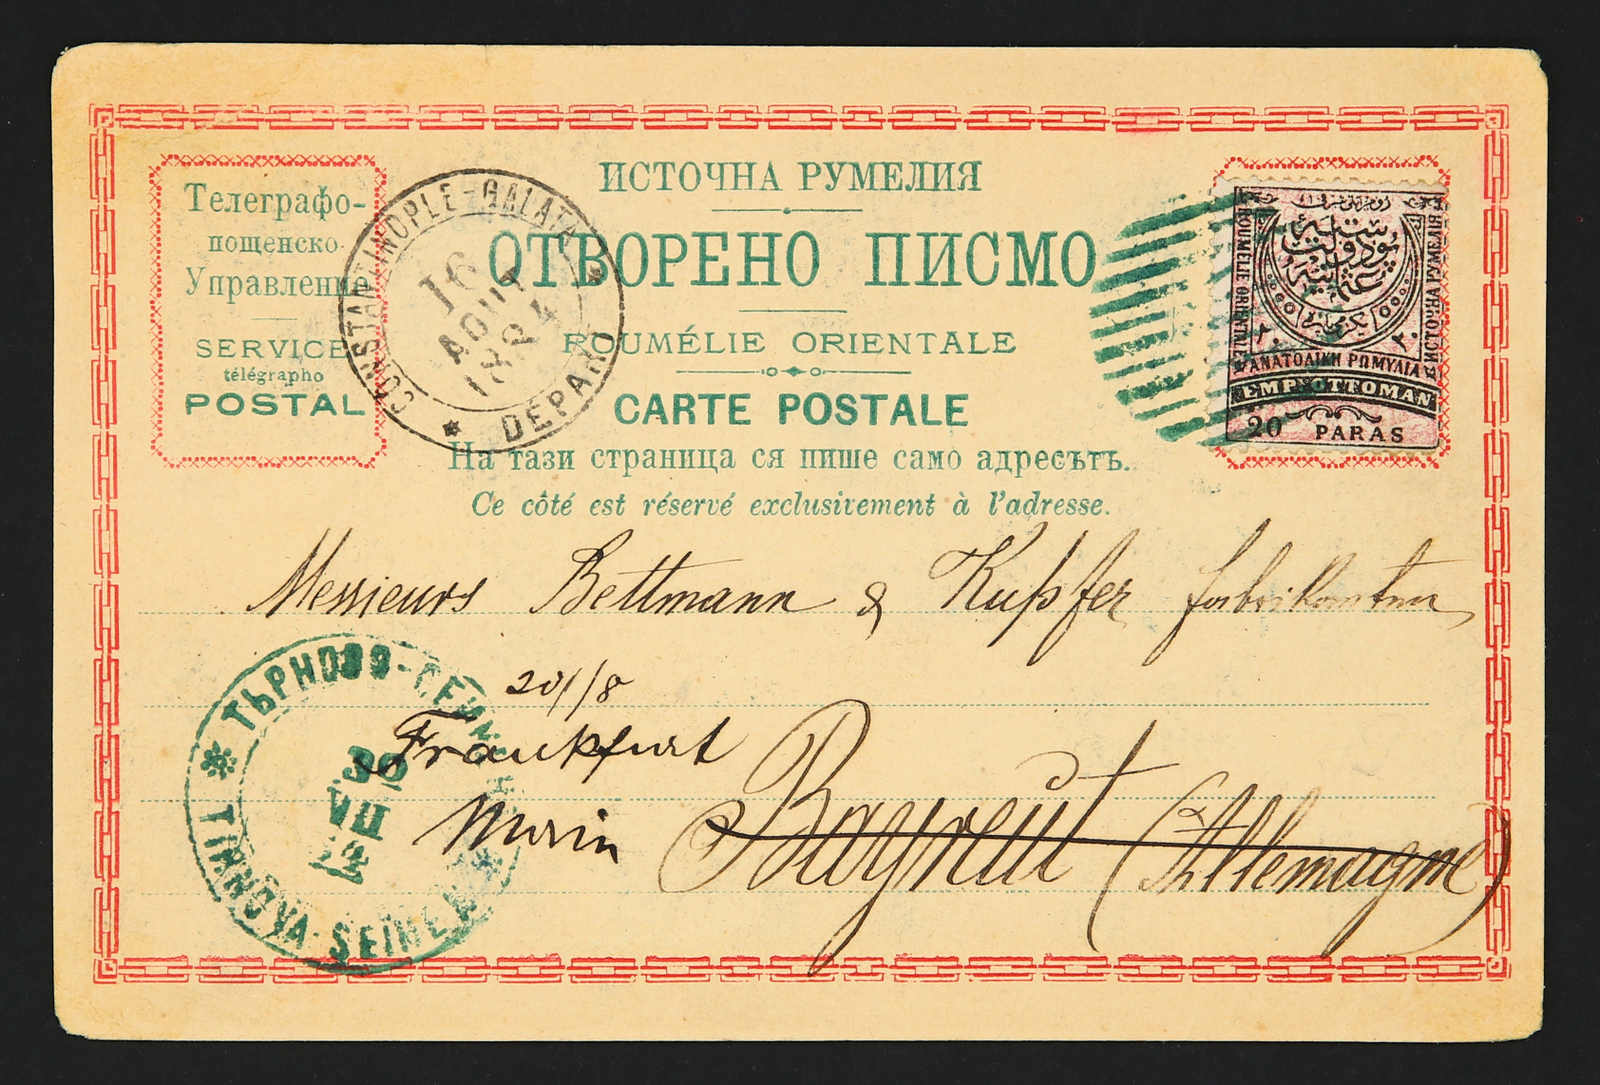 Телеграфо-
пощенско
Управление
SERVICE
télégrapho
POSTAL
CONSTANTINOPLE-GALATA
16
AOUT
1884
DEPART
ИСТОЧНА РУМЕЛИЯ
ОТВОРЕНО ПИСМО
ROUMÉLIE ORIENTALE
CARTE POSTALE
На тази страница ся пише само адресътъ.
Ce côté est réservé exclusivement à l'adresse.
ROUMELIE ORIENTALE
ИСТОЧНА РУМЕЛИЯ
ΑΝΑΤΟΛΙΚΗ ΡΩΜΥΛΙΑ
EMP: OTTOMAN
20 PARAS
Messieurs Bettmann & Kupfer fabrikanten
20/8
Frankfurt
Main
Bayreut (Allemagne)
ТЪРНОВО-СЕЙМ
30
VII
TIRNOVA-SEIMEN